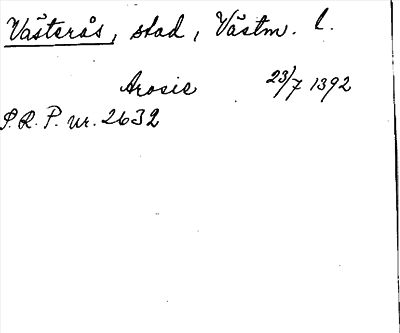 Västerås, stad, Västm. l.
Arosie 23/7 1392
S.R.P. nr. 2632